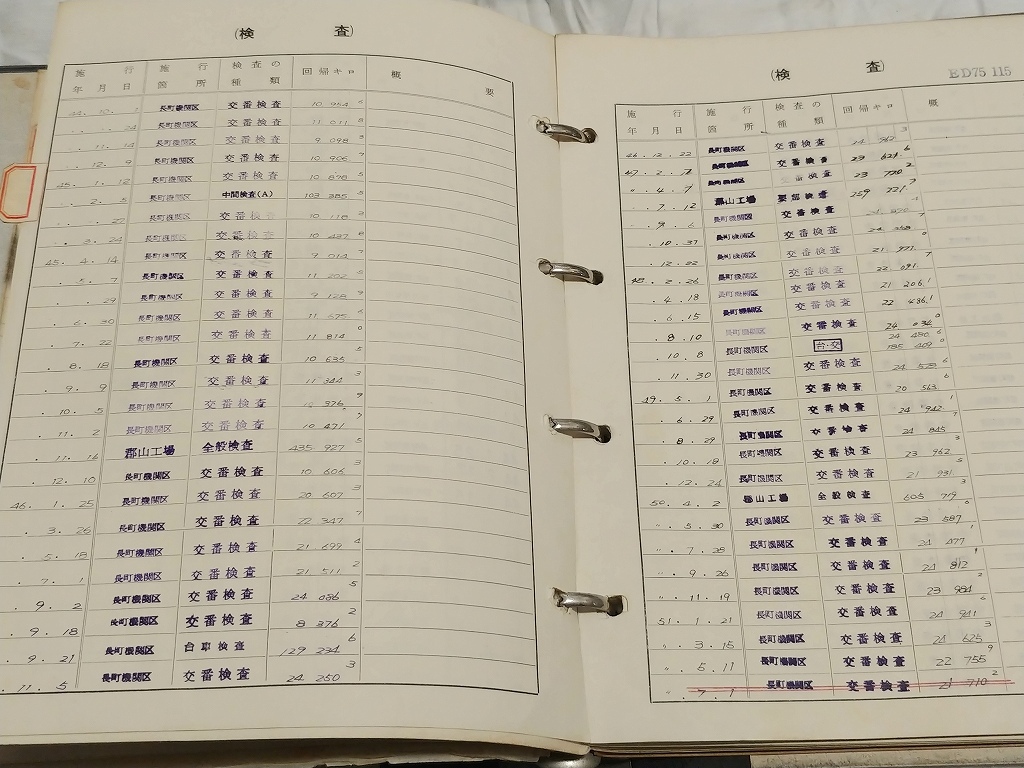 (検 査)
施 行 年 月 日 施 行 箇 所 検査の種 類 回帰キロ 概 要
44.10.1 長町機関区 交番検査 10 954 6
. .24 長町機関区 交番検査 11 011 8
.11.14 長町機関区 交番検査 9 098 3
.12.9 長町機関区 交番検査 10 906 7
45.1.12 長町機関区 交番検査 10 898 5
.2.5 長町機関区 中間検査(A) 103 385 5
. .22 長町機関区 交番検査 10 118 3
.3.24 長町機関区 交番検査 10 437 8
45.4.14 長町機関区 交番検査 9 014 7
.5.7 長町機関区 交番検査 11 202 5
. .29 長町機関区 交番検査 9 128 9
.6.30 長町機関区 交番検査 11 675 6
.7.22 長町機関区 交番検査 11 814 0
.8.18 長町機関区 交番検査 10 635 5
.9.9 長町機関区 交番検査 11 344 3
.10.5 長町機関区 交番検査 10 376 9
.11.2 長町機関区 交番検査 10 471 7
.11.16 郡山工場 全般検査 435 927 5
.12.10 長町機関区 交番検査 10 606 3
46.1.25 長町機関区 交番検査 20 607 3
.3.26 長町機関区 交番検査 22 347 7
.5.18 長町機関区 交番検査 21 699 4
.7.1 長町機関区 交番検査 21 511 2
.9.2 長町機関区 交番検査 24 086 5
.9.18 長町機関区 交番検査 8 376 2
.9.21 長町機関区 台車検査 129 234 6
.11.5 長町機関区 交番検査 24 250 3
(検 査) ED75 115
施 行 年 月 日 施 行 箇 所 検査の種 類 回帰キロ 概
46.12.22 長町機関区 交番検査 24 962 3
47.2.7 長町機関区 交番検査 23 624 6
〃.4.7 長町機関区 交番検査 23 720 2
.7.12 郡山工場 要部検査 259 221 7
.9.6 長町機関区 交番検査
.10.31 長町機関区 交番検査
.12.22 長町機関区 交番検査 21 977
48.2.26 長町機関区 交番検査 22 091 7
.4.18 長町機関区 交番検査 21 206.1
.6.15 長町機関区 交番検査 22 486.1
.8.10 長町機関区 交番検査 24 034 0
.10.8 長町機関区 台.交 24 480 6 185 409 0
.11.30 長町機関区 交番検査 24 528
49.5.1 長町機関区 交番検査 20 563 6
.6.29 長町機関区 交番検査 24 942 1
.8.29 長町機関区 交番検査 24 845 7
.10.18 長町機関区 交番検査 23 962 3
.12.24 長町機関区 交番検査 21 931 5
50.4.2 郡山工場 全般検査 605 719 3
〃.5.30 長町機関区 交番検査 23 587 5
〃.7.28 長町機関区 交番検査 24 477 1
〃.9.26 長町機関区 交番検査 24 812 1
〃.11.19 長町機関区 交番検査 23 984 2
51.1.21 長町機関区 交番検査 24 941 6
〃.3.15 長町機関区 交番検査 24 625 3
〃.5.11 長町機関区 交番検査 22 755 9
〃.7.1 長町機関区 交番検査 21 710 2